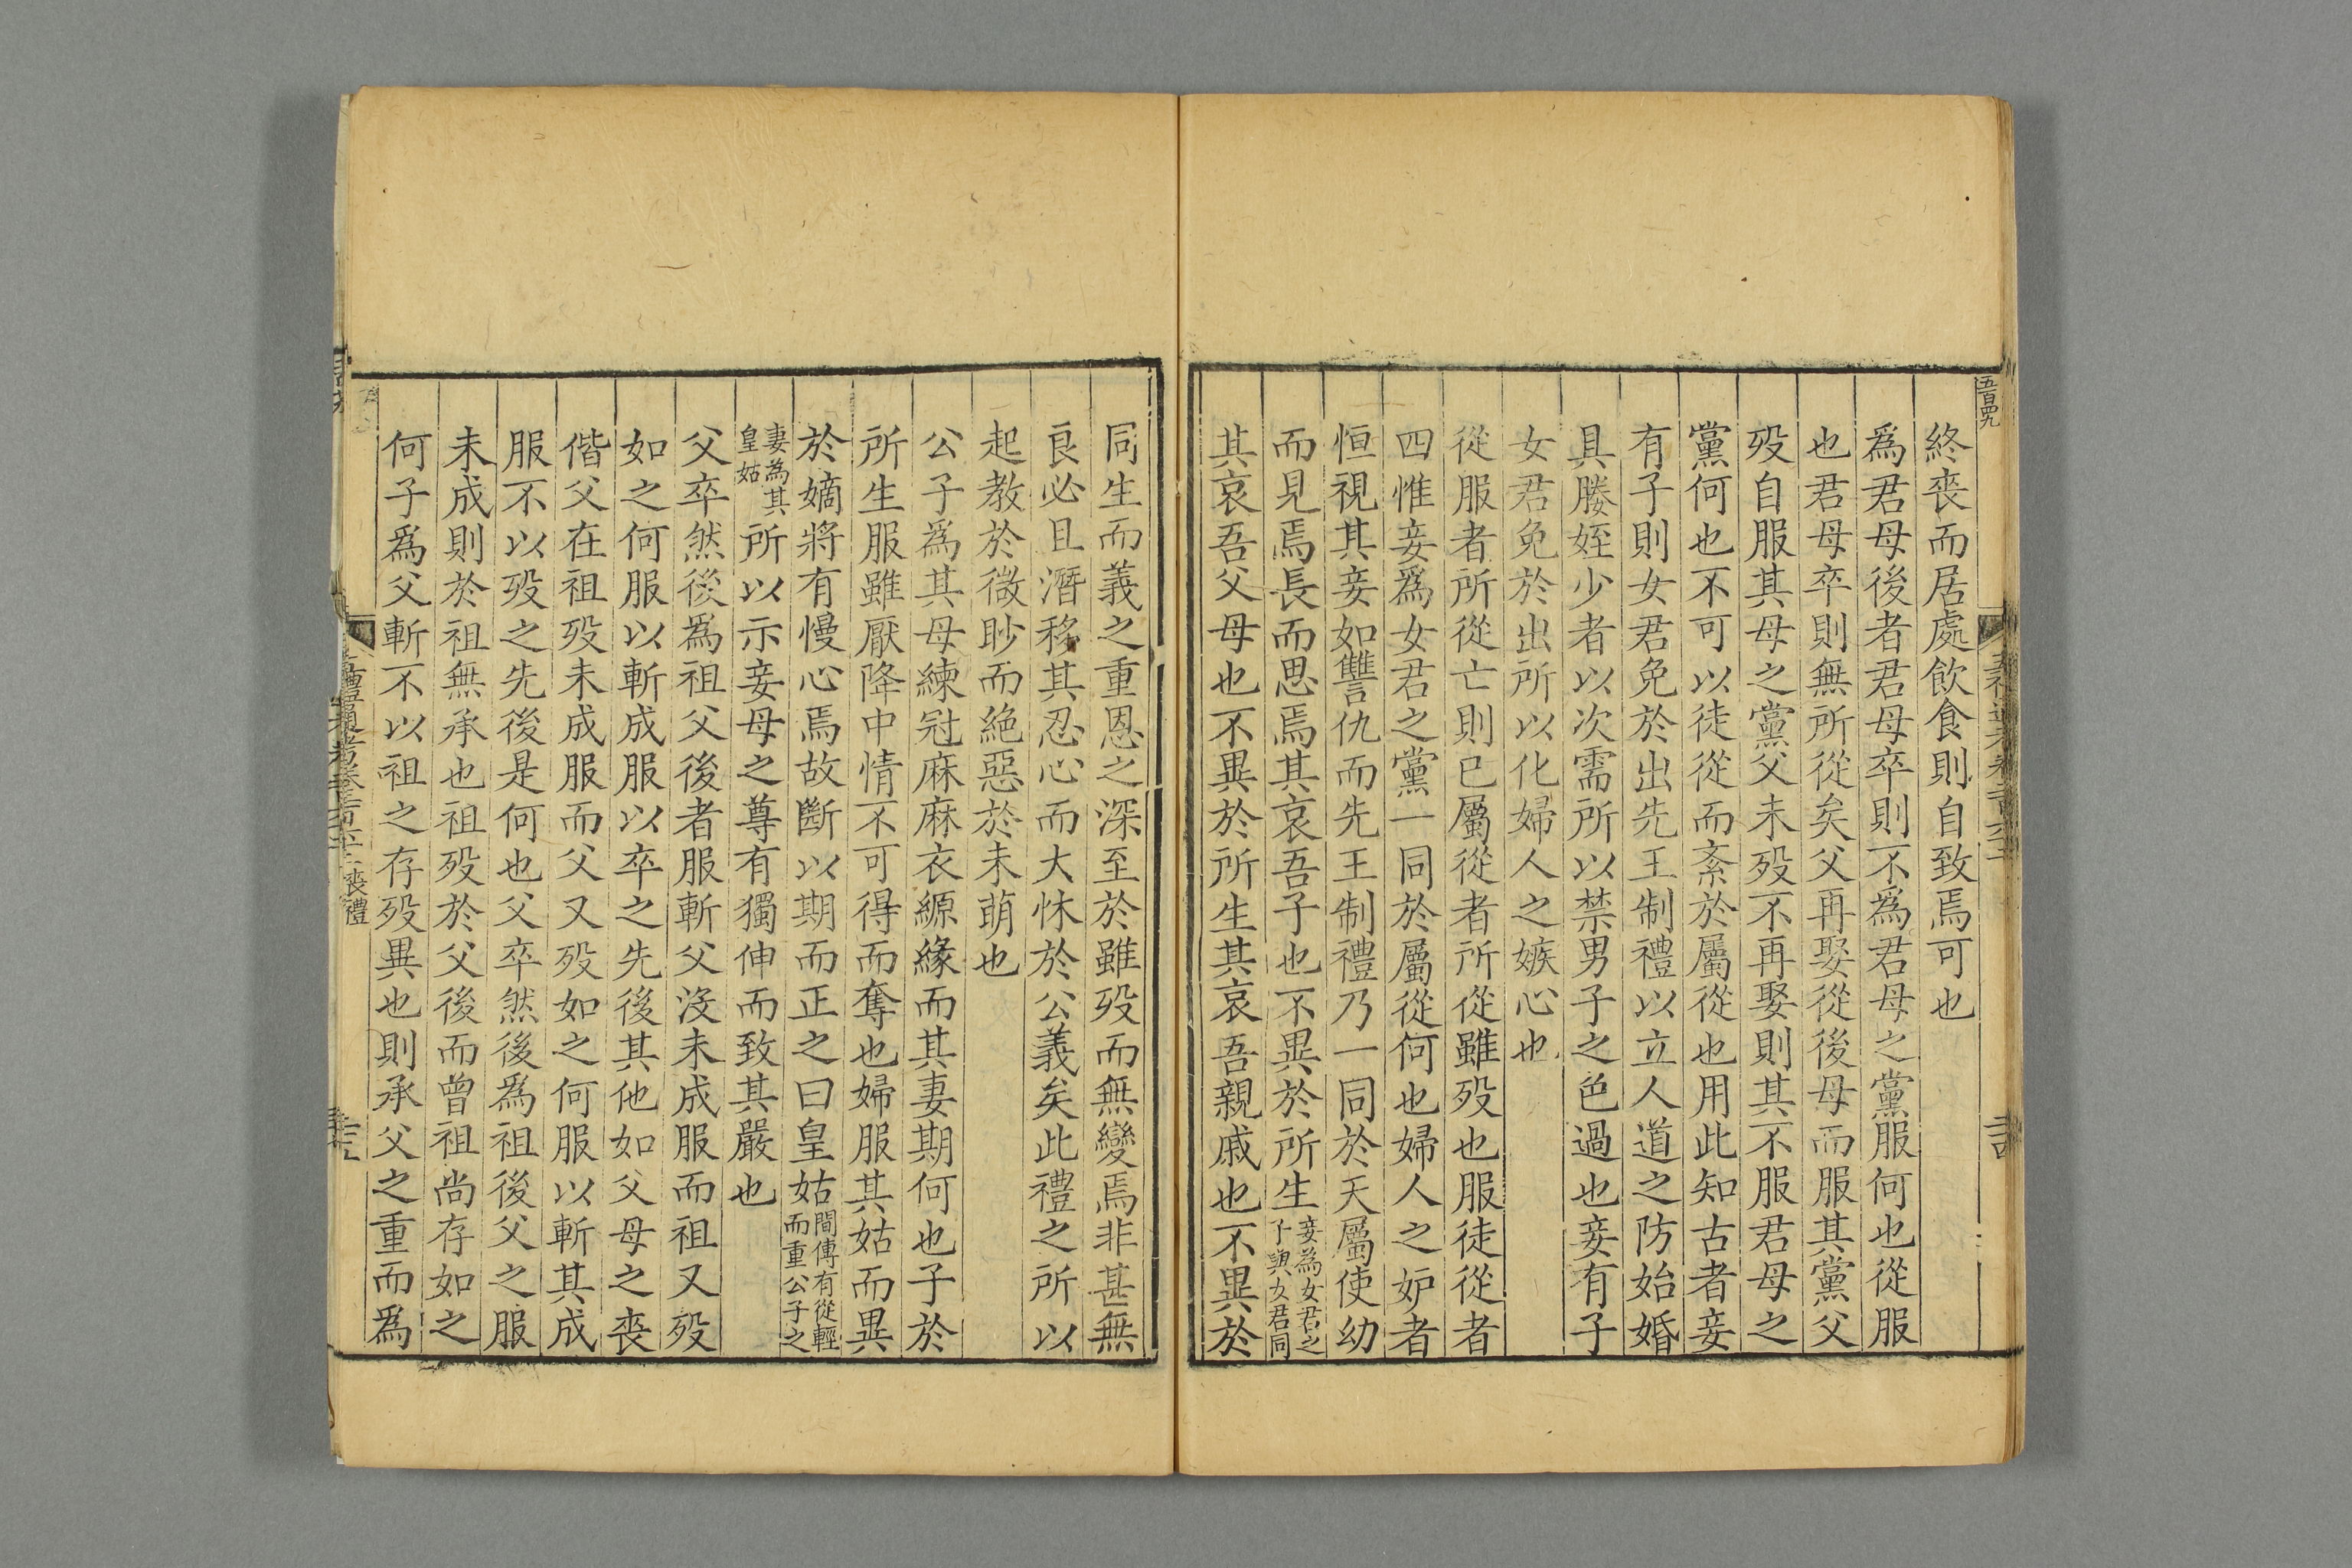 終喪而居處飲食則自致焉可也
爲君母後者君母卒則不爲君母之黨服何也從服
也君母卒則無所從矣父再娶從後母而服其黨父
歿自服其母之黨父未歿不再娶則其不服君母之
黨何也不可以徒從而紊於屬從也用此知古者妾
有子則女君免於出先王制禮以立人道之防始婚
具媵姪少者以次需所以禁男子之色過也妾有子
女君免於出所以化婦人之嫉心也
從服者所從亡則已屬從者所從雖歿也服徒從者
四惟妾爲女君之黨一同於屬從何也婦人之妒者
恒視其妾如讐仇而先王制禮乃一同於天屬使幼
而見焉長而思焉其哀吾子也不異於所生妾為女君之
子與女君同
其哀吾父母也不異於所生其哀吾親戚也不異於
同生而義之重恩之深至於雖歿而無變焉非甚無
良必且潛移其忍心而大怵於公義矣此禮之所以
起教於微眇而絶惡於未萌也
公子爲其母練冠麻麻衣縓緣而其妻期何也子於
所生服雖厭降中情不可得而奪也婦服其姑而異
於嫡將有慢心焉故斷以期而正之曰皇姑間傳有從輕
而重公子之
妻為其
皇姑所以示妾母之尊有獨伸而致其嚴也
父卒然後爲祖父後者服斬父沒未成服而祖又歿
如之何服以斬成服以卒之先後其他如父母之喪
偕父在祖歿未成服而父又歿如之何服以斬其成
服不以歿之先後是何也父卒然後爲祖後父之服
未成則於祖無承也祖歿於父後而曾祖尚存如之
何子爲父斬不以祖之存歿異也則承父之重而爲